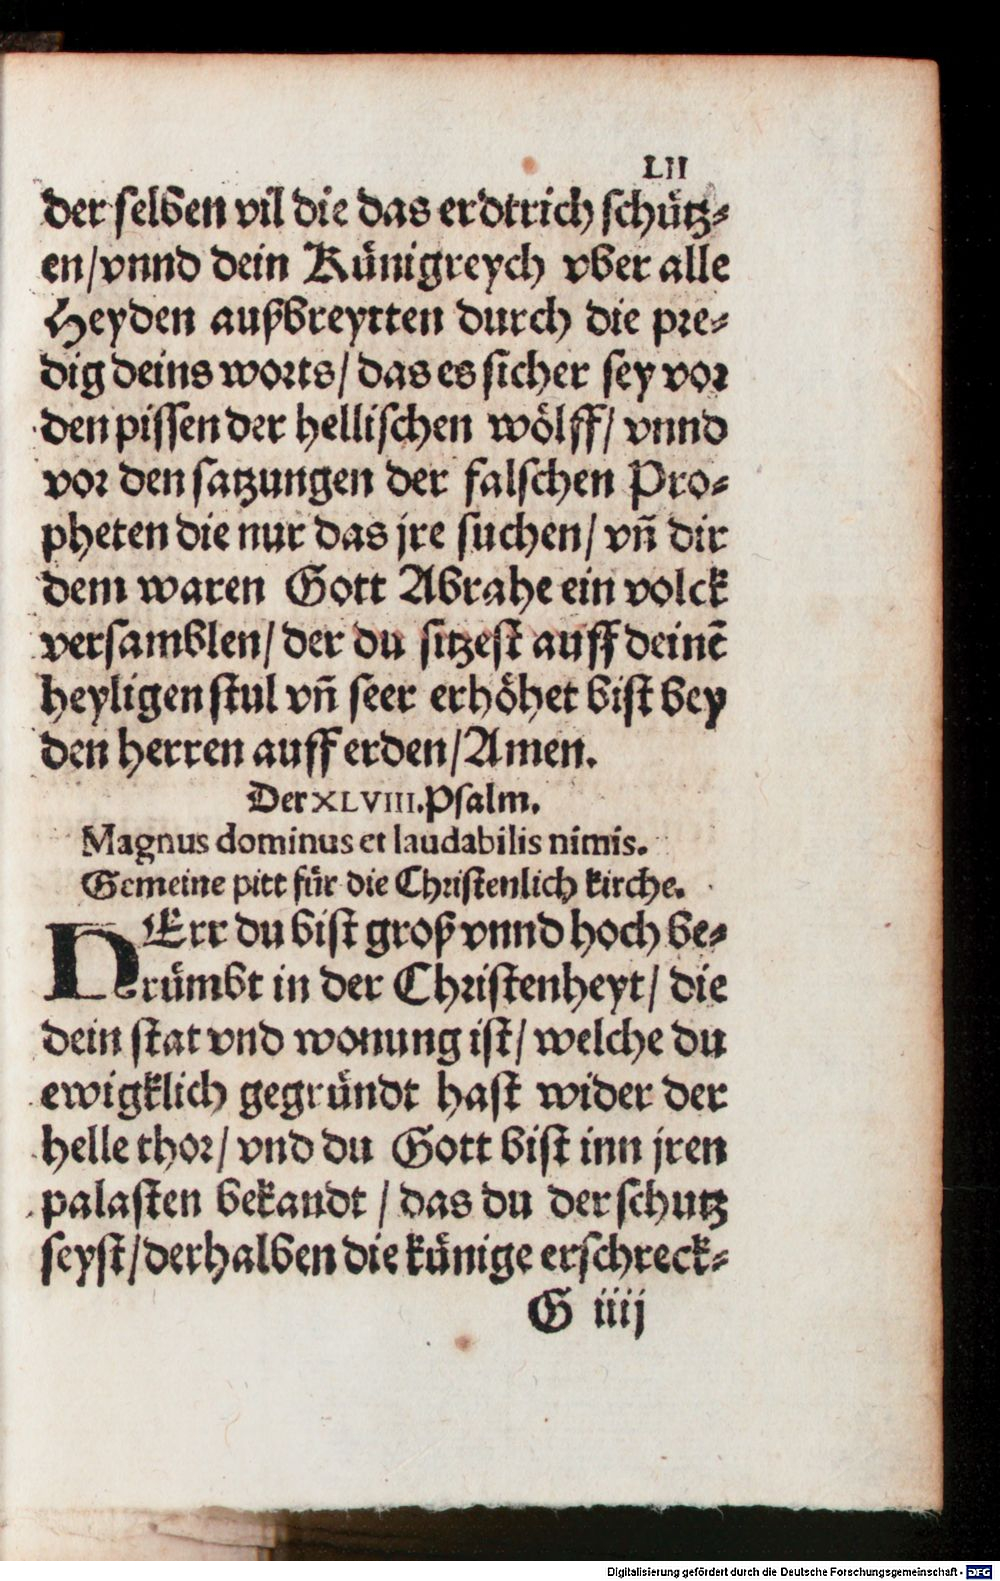 LII
der selben vil die das erdtrich schütz-
en/vnnd dein Künigreych vber alle
Heyden außbreytten durch die pre-
dig deins worts/das es sicher sey vor
den pissen der hellischen wölff/vnnd
vor den satzungen der falschen Pro-
pheten die nur das jre suchen/vñ dir
dem waren Gott Abrahe ein volck
versamblen/der du sitzest auff deinē
heyligen stul vñ seer erhöhet bist bey
den herren auff erden/Amen.
Der XLVIII.Psalm.
Magnus dominus et laudabilis nimis.
Gemeine pitt für die Christenlich kirche.
HErr du bist groß vnnd hoch be-
rümbt in der Christenheyt/die
dein stat vnd wonung ist/welche du
ewigklich gegründt hast wider der
helle thor/vnd du Gott bist inn jren
palasten bekandt/das du der schutz
seyst/derhalben die künige erschreck-
G iiij
Digitalisierung gefördert durch die Deutsche Forschungsgemeinschaft - DFG